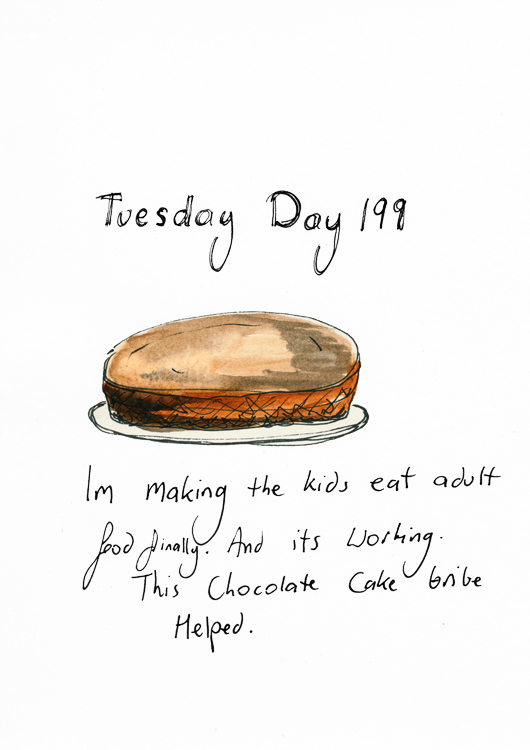 Tuesday Day 199
Im making the kids eat adult
food finally. And its working.
This Chocolate Cake bribe
Helped.